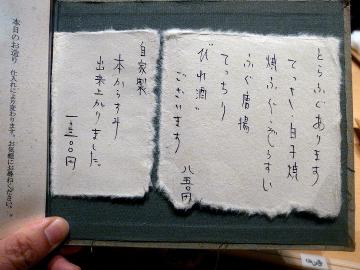 とらふぐあります
てっさ・白子焼
焼ふぐ・ふぐぞうすい
ふぐ唐揚
てっちり
ひれ酒
ございます
八五〇円
自家製
本からすみ
出来上がりました。
一三〇〇円
本日のお造り 仕入れにより変わります。お気軽にお尋ねください。